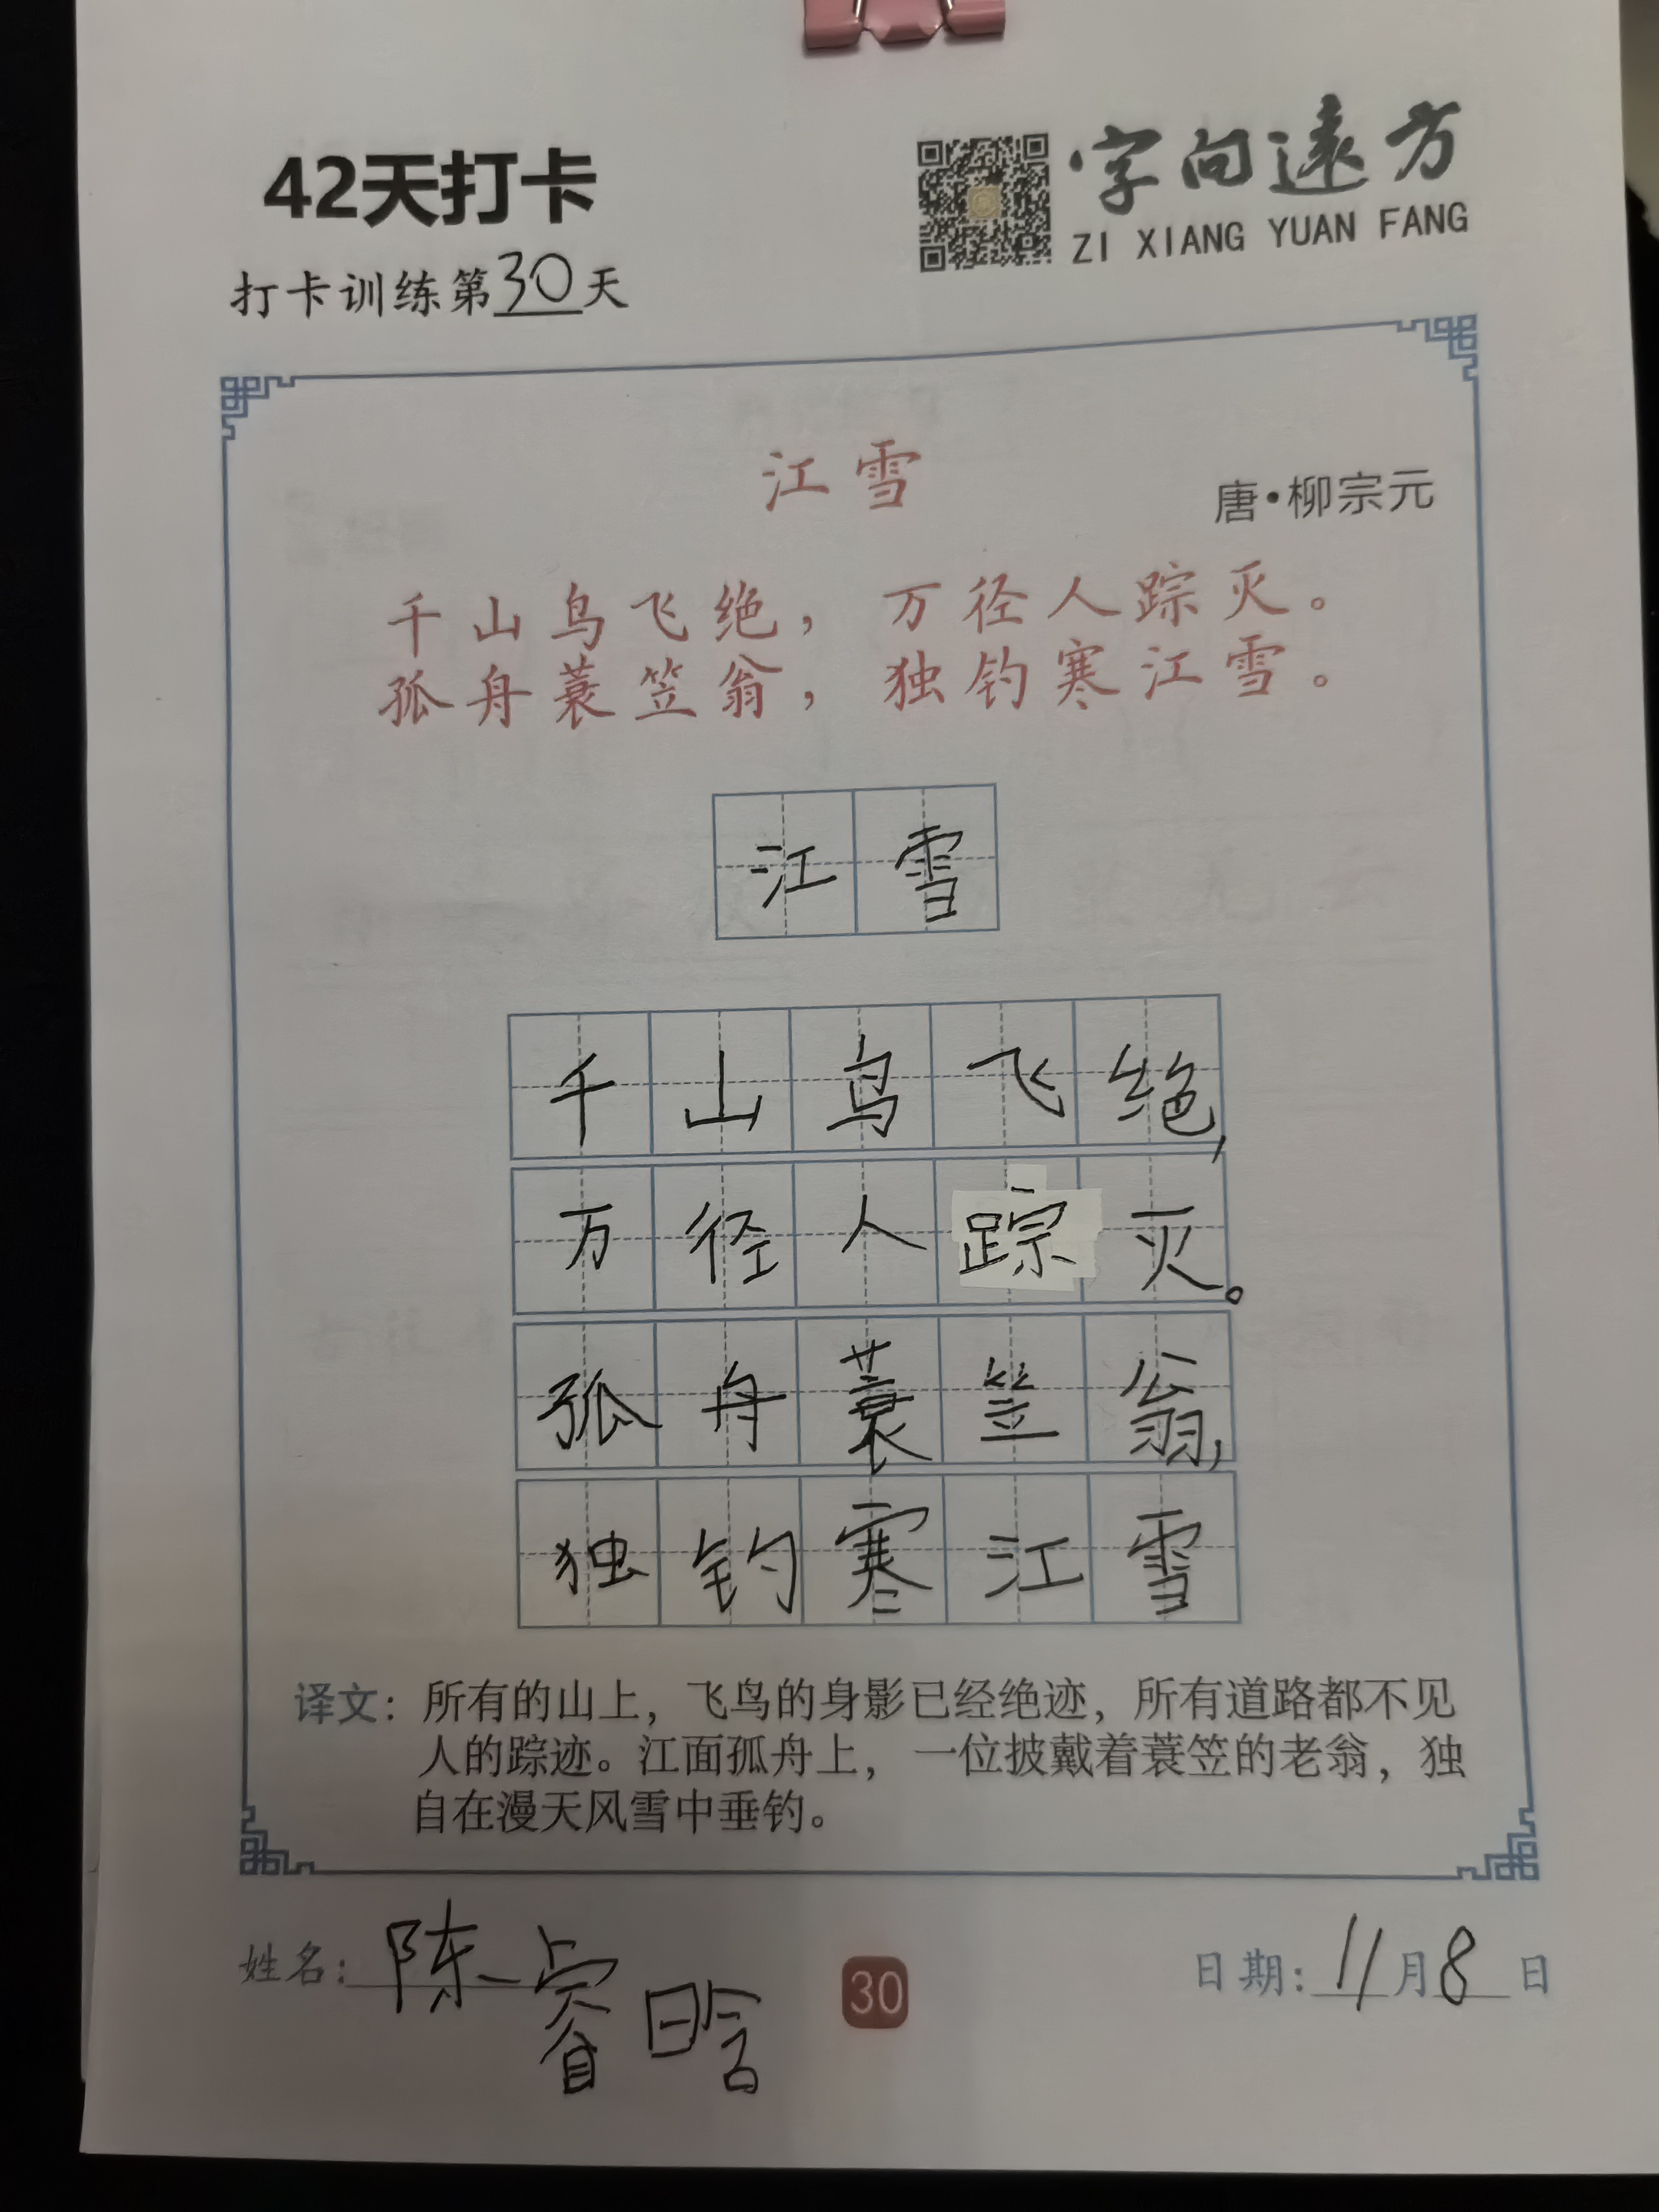 42天打卡
字向遠方
ZI XIANG YUAN FANG
打卡训练第30天
江雪
唐·柳宗元
千山鸟飞绝，万径人踪灭。
孤舟蓑笠翁，独钓寒江雪。
江雪
千山鸟飞绝，
万径人踪灭。
孤舟蓑笠翁，
独钓寒江雪
译文：所有的山上，飞鸟的身影已经绝迹，所有道路都不见
人的踪迹。江面孤舟上，一位披戴着蓑笠的老翁，独
自在漫天风雪中垂钓。
姓名：陈睿晗
30
日期：11月8日